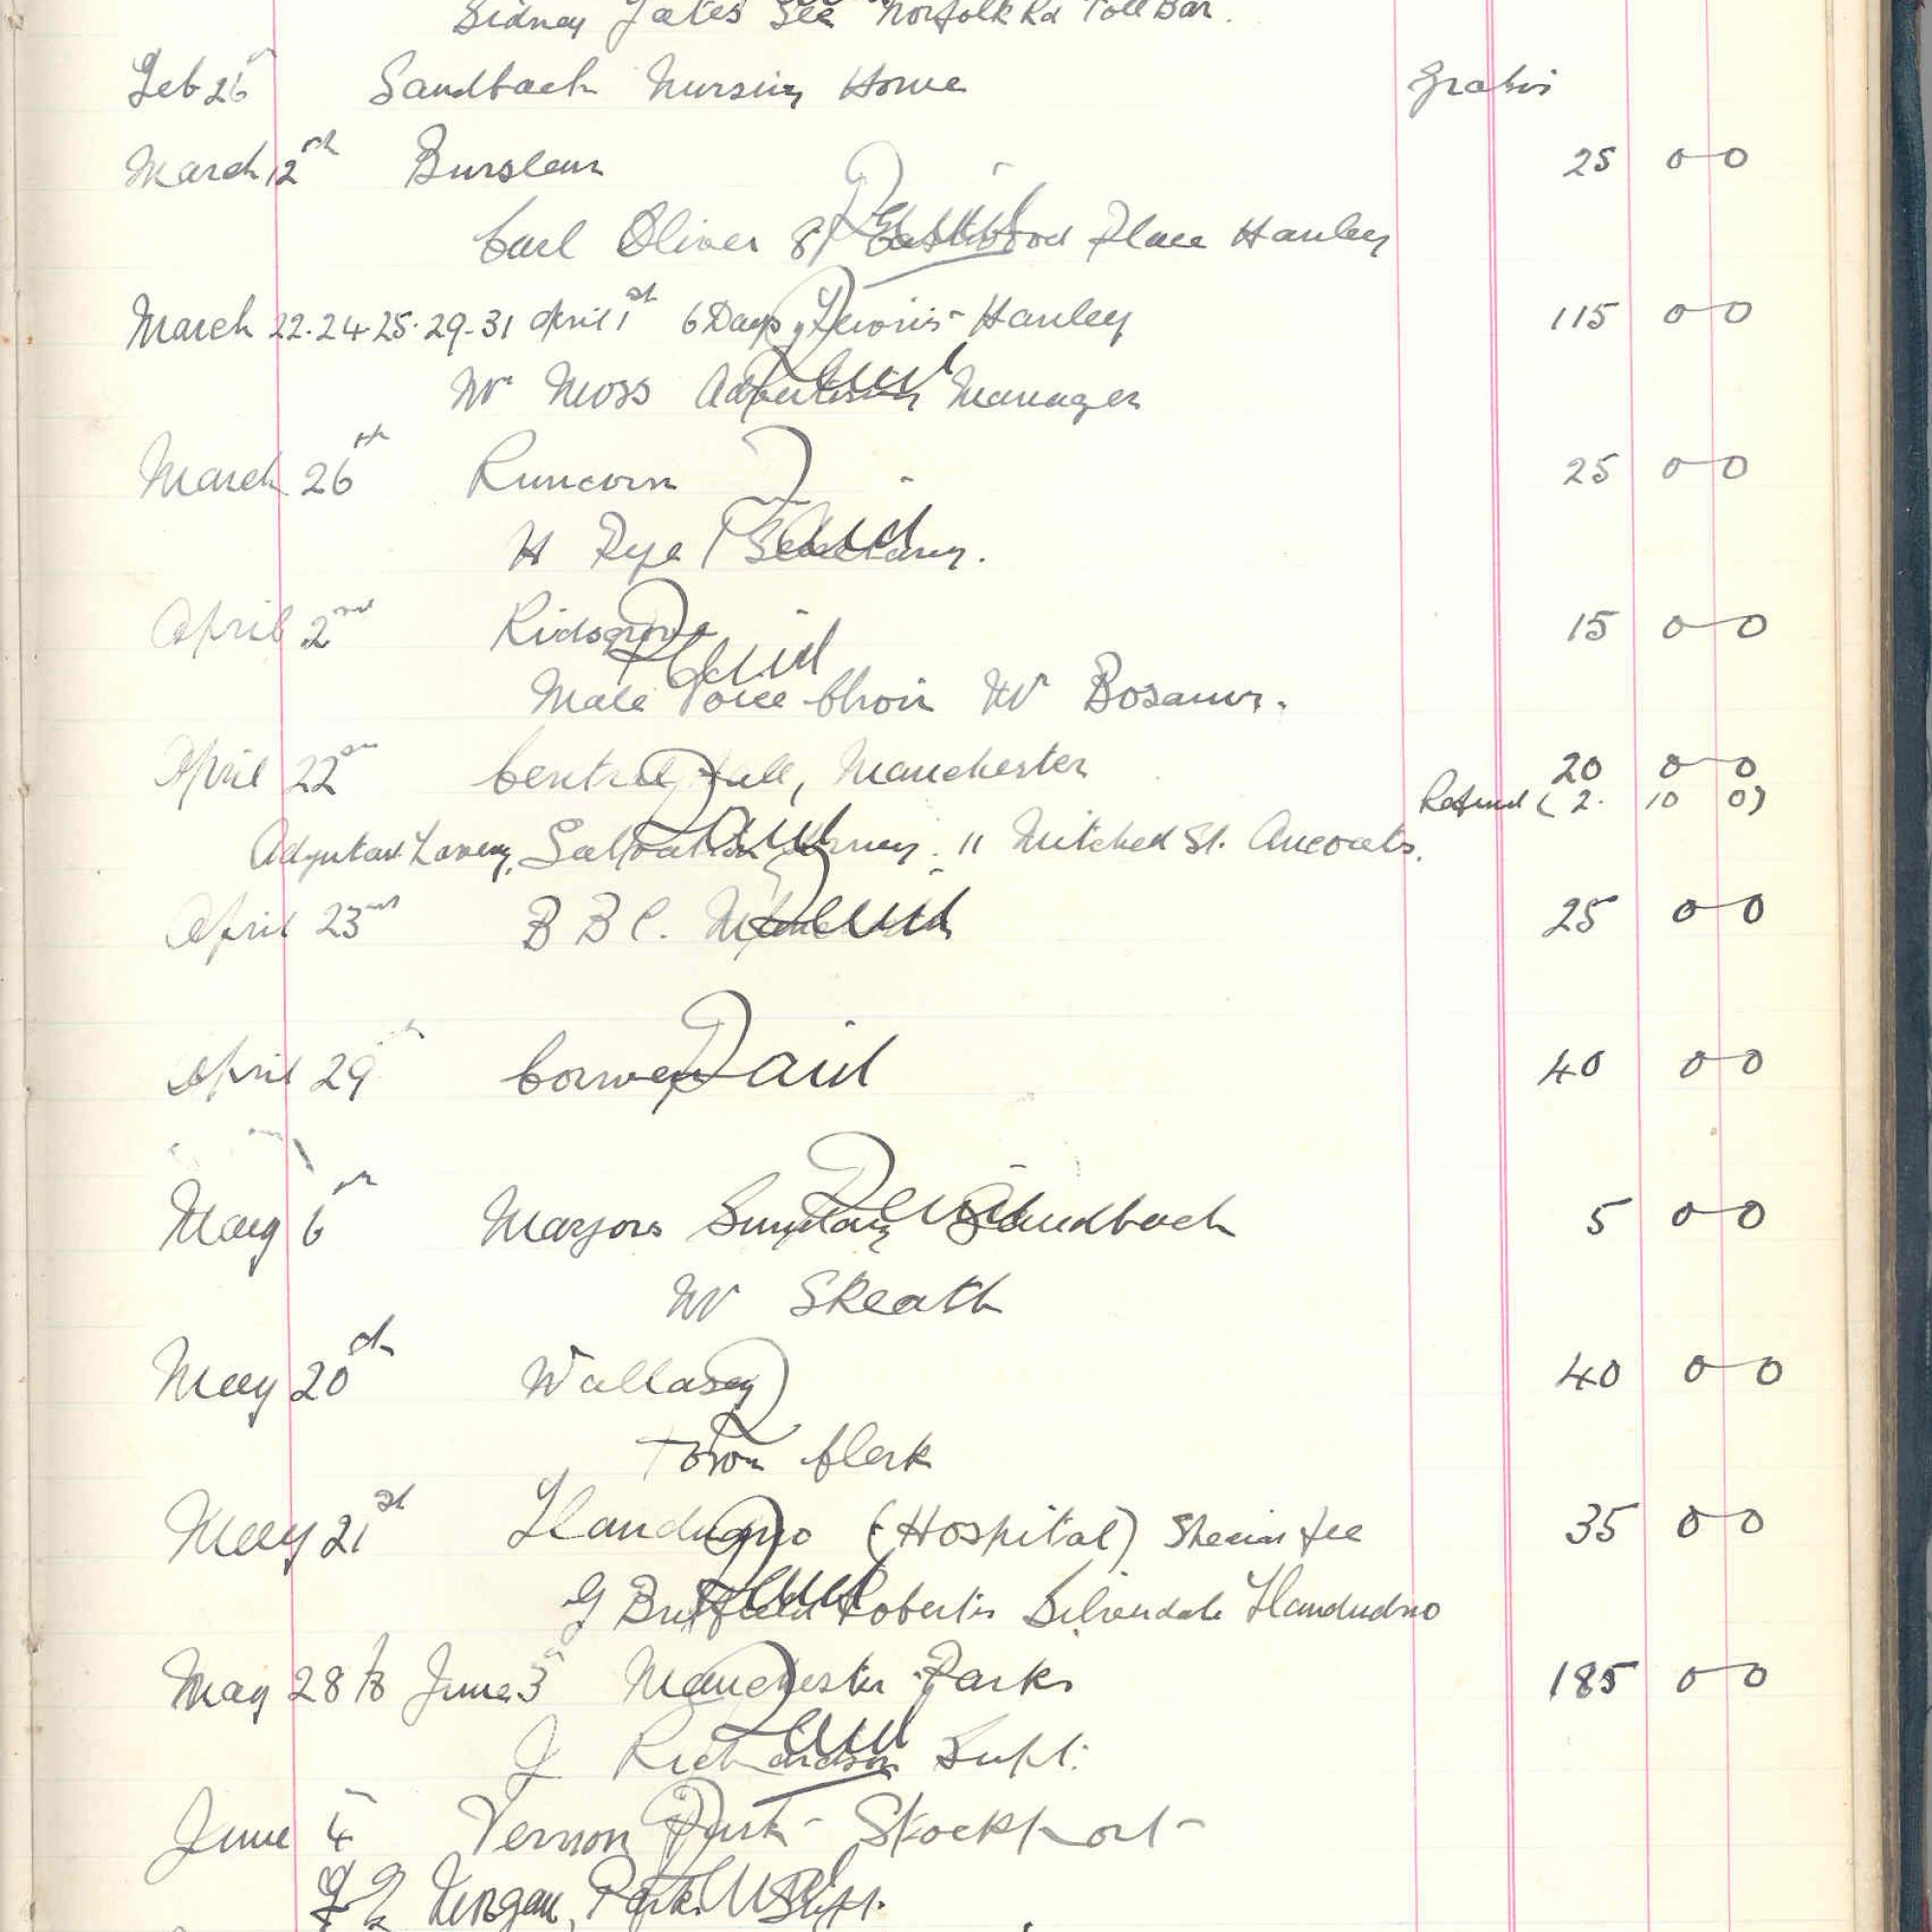 Sidney Yates Sec Norfolk Rd Toll Bar.
Feb 26 Sandbach Nursing Home Gratis
March 12th Burslem 25 0 0
Carl Oliver 81 Eastwood Place Hanley
March 22.24.25.29.31 April 1st 6 Days Lewis's Hanley 115 0 0
Mr Moss Advertising Manager
March 26th Runcorn 25 0 0
H Rye Secretary.
April 2nd Kidsgrove 15 0 0
Male Voice Choir Mr
April 22nd Central Hall, Manchester 20 0 0
Refund ( 2. 10 0)
Adjutant Salvation Army. 11 Mitchel St. Ancoats.
April 23rd B B C. Manchester 25 0 0
April 29th Corwen Paid 40 0 0
May 6th Mayors Sunday Sandbach 5 0 0
Mr Skeath
May 20th Wallasey 40 0 0
Town Clerk
May 21st Llandudno (Hospital) Special fee 35 0 0
G Roberts Silverdale Llandudno
May 28 to June 3 Manchester Parks 185 0 0
J Richardson Supt.
June 4 Vernon Park Stockport
Parks Supt.